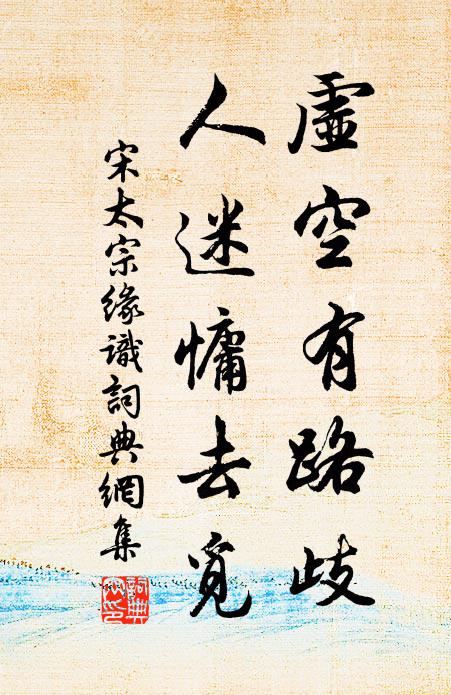 虛空有路歧
人迷慵去覓
宋太宗緣識詞典網集